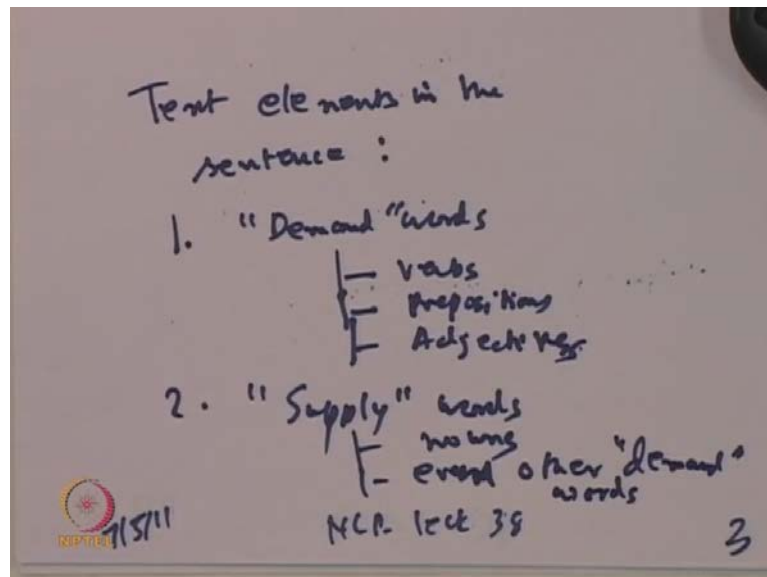 Text elements in the
sentence :
1. "Demand" words
verbs
prepositions
Adjectives
2. "Supply" words
nouns
even other "demand"
words
NPTEL 7/5/11 NLP lect 38 3